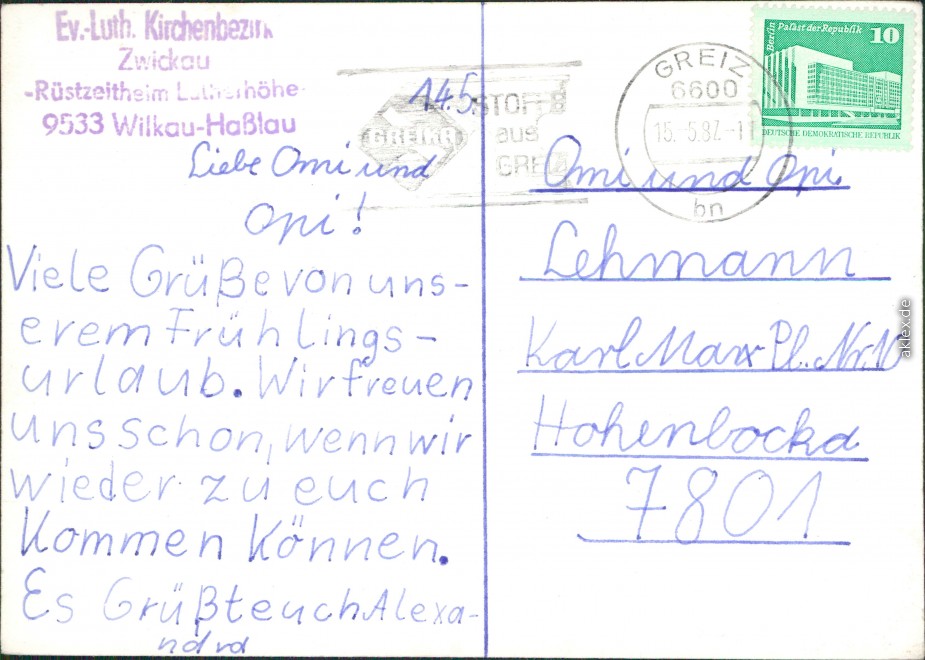 Ev.-Luth. Kirchenbezirk
Zwickau
-Rüstzeitheim Lutherhöhe-
9533 Wilkau-Haßlau
14.5.
Liebe Omi und
Opi!
Viele Grüße von uns-
erem Frühlings-
urlaub. Wir freuen
uns schon, wenn wir
wieder zu euch
Kommen Können.
Es Grüßt euch Alexa-
ndra
GREIKA
STOFFE
aus
GREIZ
GREIZ
6600
15.-5.87.-11
bn
Berlin
Palast der Republik
10
DEUTSCHE DEMOKRATISCHE REPUBLIK
Omi und Opi
Lehmann
Karl Marx Pl. Nr. 10
Hohenbocka
7801
aklex.de